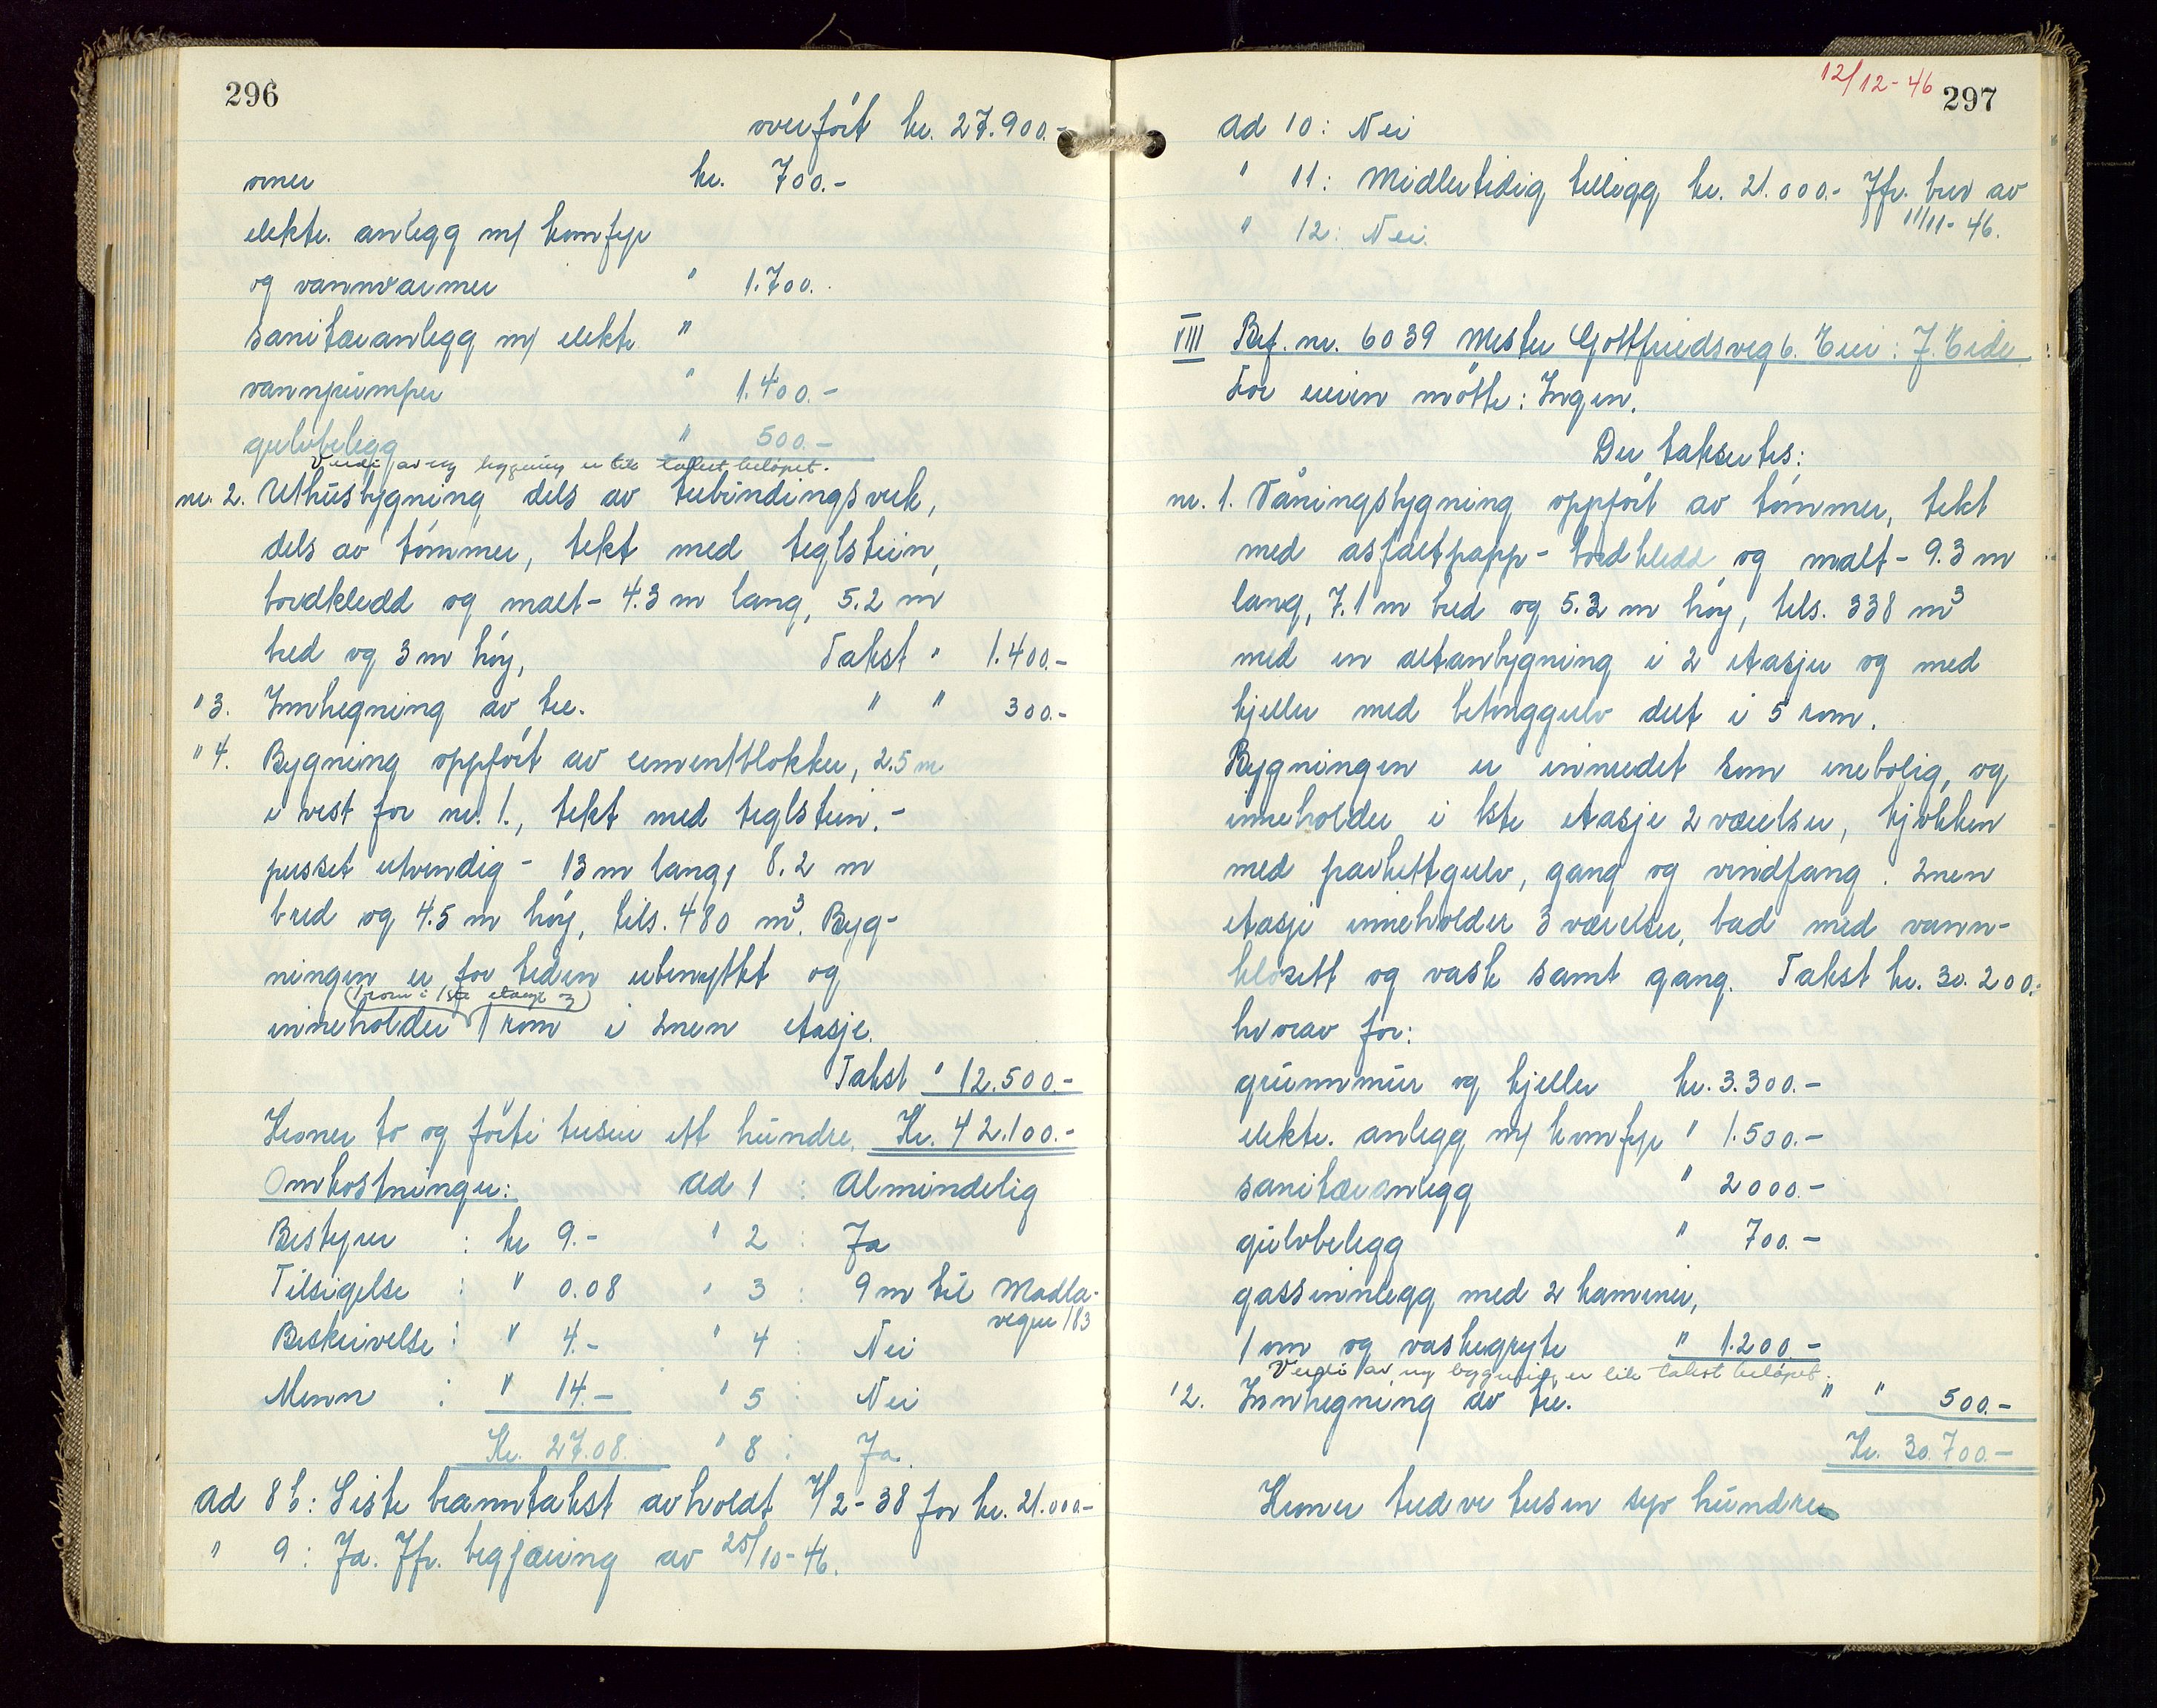 296
overført kr. 27.900.-
ovner kr. 700.-
elektr. anlegg m/ komfyr
og vannvarmer " 1.700.-
sanitæranlegg m/ elektr. "
vannpumper " 1.400.-
gulvbelegg " 500.-
Verdi av ny bygning er lik takst beløpet.
nr. 2. Uthusbygning dels av trebindingsverk,
dels av tømmer, tekt med teglstein,
bordkledd og malt - 4.3 m lang, 5.2 m
bred og 3 m høy, Takst " 1.400.-
" 3. Innhegning av tre. " " 300.-
" 4. Bygning oppført av cementblokker, 2.5 m
i vest for nr. 1., tekt med teglstein. -
pusset utvendig - 13 m lang, 8.2 m
bred og 4.5 m høy, tils. 480 m³. Byg-
ningen er for tiden ubenyttet og
(1 rom i 1ste etasje og)
inneholder 1 rom i 2nen etasje.
Takst " 12.500.-
Kroner to og førti tusen ett hundre. Kr. 42.100.-
Omkostninger: ad 1 : Almindelig
Bestyrer : kr 9.- " 2 : Ja
Tilsigelse : " 0.08 " 3 : 9 m til Madla-
vegen 183
Beskrivelse : " 4.- " 4 : Nei
Menn : " 14.- " 5 : Nei
Kr. 27.08. " 8 : Ja.
ad 8 b: Siste branntakst avholdt 7/2-38 for kr. 21.000.-
" 9 : Ja. Jfr. begjæring av 25/10-46.
12/12-46 297
ad 10 : Nei
" 11 : Midlertidig tillegg kr. 21.000.- Jfr. brev av
11/11-46.
" 12 : Nei.
VIII Bef. nr. 6039 Mester Gottfriedsveg 6. Eier: J. Eide.
For eieren møtte: Ingen.
Der takseres:
nr. 1. Våningsbygning oppført av tømmer, tekt
med asfaltpapp - bordkledd og malt - 9.3 m
lang, 7.1 m bred og 5.2 m høy, tils. 338 m³
med en altanbygning i 2 etasjer og med
kjeller med betonggulv delt i 5 rom.
Bygningen er innredet som enebolig, og
inneholder i 1ste etasje 2 værelser, kjøkken
med parkettgulv, gang og vindfang. 2nen
etasje inneholder 3 værelser, bad med vann-
klosett og vask samt gang. Takst kr. 30.200.-
hvorav for:
grunnmur og kjeller kr. 3.300.-
elektr. anlegg m/ komfyr " 1.500.-
sanitæranlegg " 2000.-
gulvbelegg " 700.-
gassinnlegg med 2 kaminer,
1 ovn og vaskegryte " 1.200.-
Verdi av ny bygning er lik takst beløpet.
" 2. Innhegning av tre. " " 500.-
Kr. 30.700.-
Kroner tredve tusen syv hundre